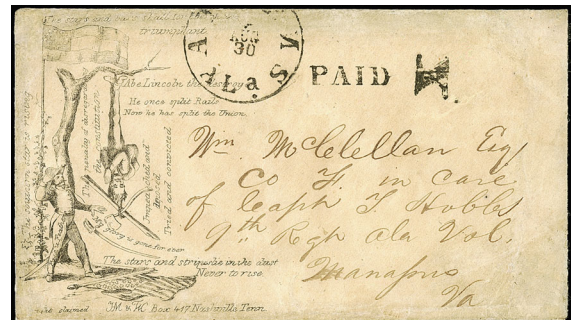 The stars and bars shall forever be
triumphant
AUG
30
ALA
PAID
Abe Lincoln the destroyer
He once split Rails
Now he has split the Union.
The penalty of disregarding
the constitution
Impeached and
Tried and convicted
My glory is gone forever
The stars and stripes lie in the dust
Never to rise.
JM & W. Box 417 Nashville Tenn
Wm. McClellan Esq
Co F. in care
of Capt T. Hobbs
9th Regt Ala Vol.
Manassas
Va